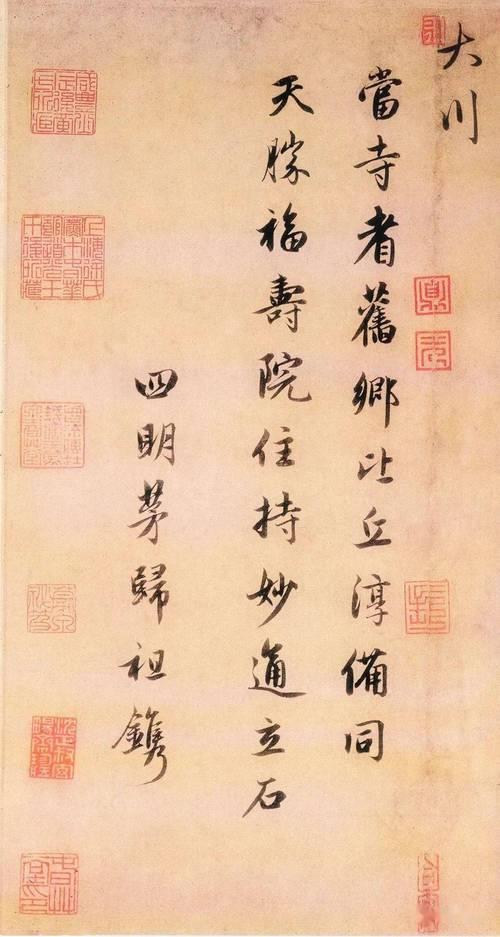 大川
當寺耆舊鄉比丘淳備同
天勝福壽院住持妙通立石
四明茅歸祖鐫